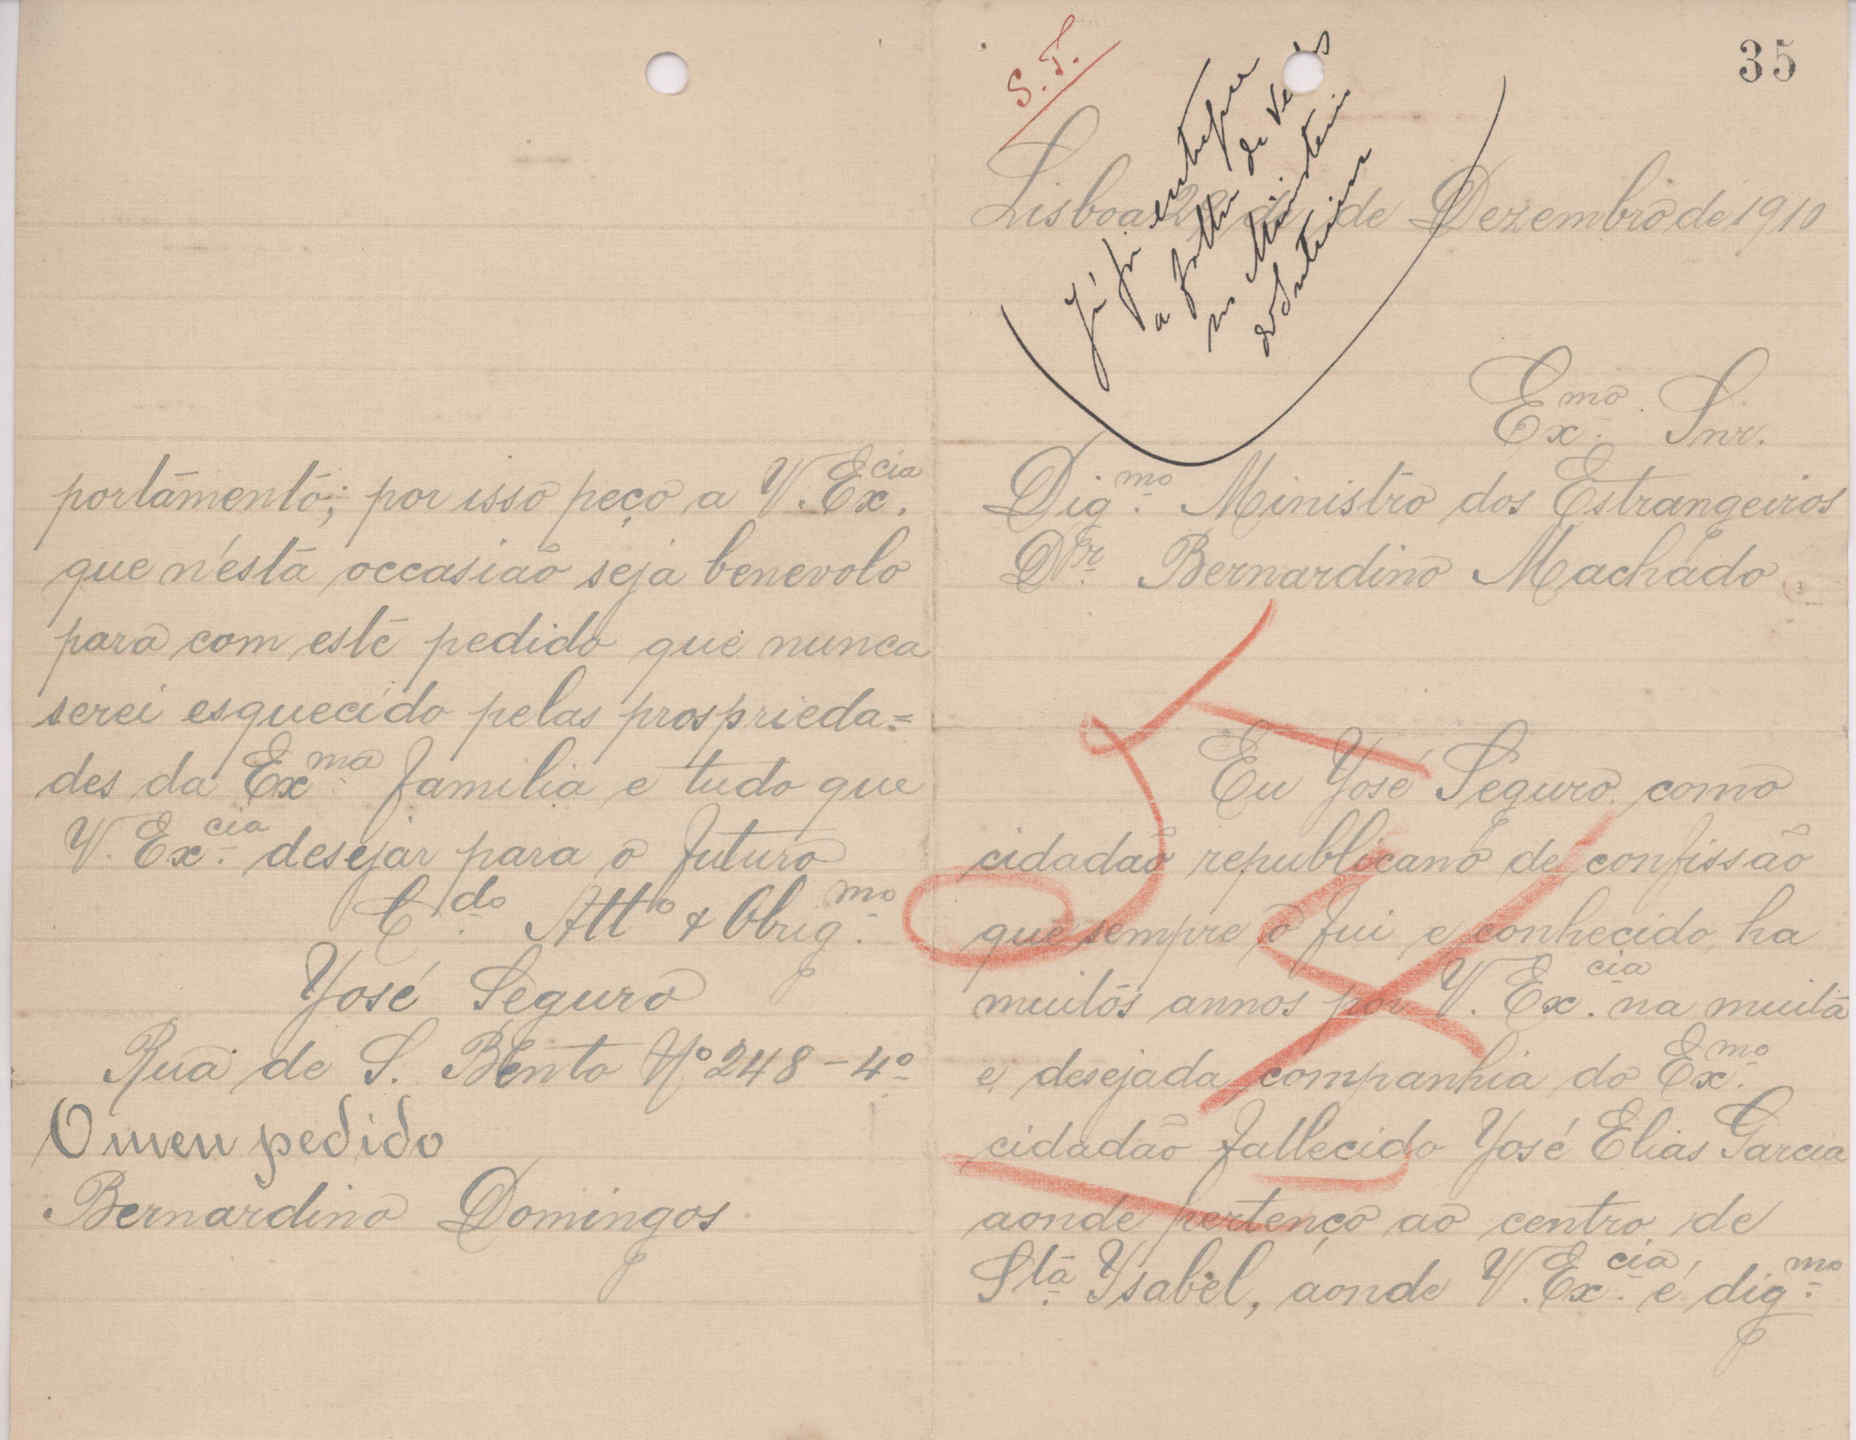 35
S. T.
Já foi entregue
a folha de
no Ministerio
do Interior
Lisboa de Dezembro de 1910
Ex.mo Snr.
Dig.mo Ministro dos Estrangeiros
D.r Bernardino Machado
Eu José Seguro como
cidadão republicano de confissão
que sempre o fui e conhecido ha
muitos annos por V. Ex.cia na muita
e desejada companhia do Ex.mo
cidadão fallecido José Elias Garcia
aonde pertenço ao centro de
Sta Ysabel, aonde V. Ex.cia é dig.mo
portamento; por isso peço a V. Ex.cia
que n'ésta occasião seja benevolo
para com este pedido que nunca
serei esquecido pelas prosprieda=
des da Ex.ma familia e tudo que
V. Ex.cia desejar para o futuro
C.do Atto & Obrig.mo
José Seguro
Rua de S. Bento Nº 248-4º
O meu pedido
Bernardino Domingos